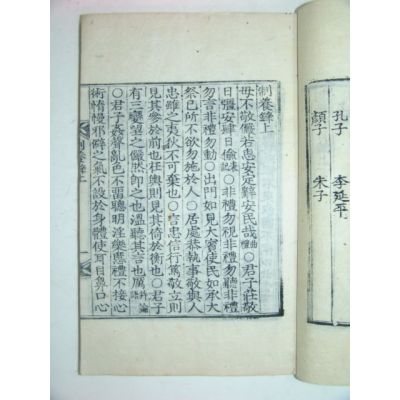 孔子 李延平
顏子 朱子
制養錄上
毋不敬儼若思安定辭安民哉 ○君子莊敬
日彊安肆日偸 ○非禮勿視非禮勿聽非禮
勿言非禮勿動○出門如見大賓使民如承大
祭己所不欲勿施於人○居處恭執事敬與人
忠雖之夷狄不可棄也○言忠信行篤敬立則
見其參於前也在輿則見其倚於衡也○君子
有三變望之儼然即之也溫聽其言也厲 論語
○君子姦聲亂色不留聰明淫樂慝禮不接心
術惰慢邪僻之氣不設於身體使耳目鼻口心
制養錄上 一